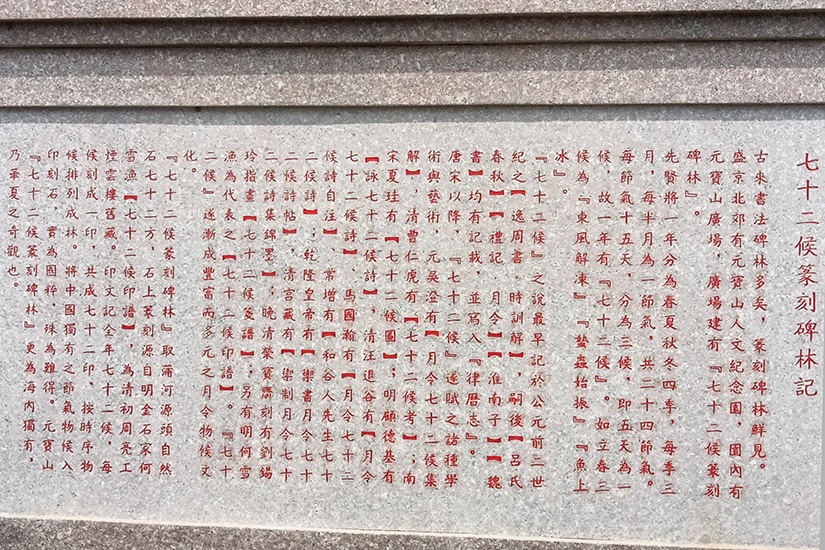 七十二候篆刻碑林記
古來書法碑林多矣，篆刻碑林鮮見。
盛京北郊有元寶山人文紀念園，園內有
元寶山廣場，廣場建有『七十二候篆刻
碑林』。
先賢將一年分為春夏秋冬四季，每季三
月，每半月為一節氣，共二十四節氣。
每節氣十五天，分為三候，即五天為一
候，故一年有『七十二候』。如立春三
候為『東風解凍』『蟄蟲始振』『魚上
冰』。
『七十二候』之說最早記於公元前三世
紀之【逸周書·時訓解】，嗣後【呂氏
春秋】【禮記·月令】【淮南子】【魏
書】均有記載，並寫入『律曆志』。
唐宋以降，『七十二候』遂賦之諸種學
術與藝術，元吳澄有【月令七十二候集
解】，清曹仁虎有【七十二候考】；南
宋夏珪有【七十二候圖】；明顧德基有
【詠七十二候詩】，清汪退谷有【月令
七十二候詩】、馬國翰有【月令七十二
候詩自注】、常增有【和谷人先生七十
二候詩】；乾隆皇帝有【御書月令七十
二候詩帖】，清宮藏有【御制月令七十
二候詩集錦墨】；晚清榮寶齋刻有劉錫
玲指畫【七十二候箋譜】；另有明何雪
漁為代表之【七十二候印譜】。『七十
二候』逐漸成豐富而多元之月令物候文
化。
『七十二候篆刻碑林』取滿河源頭自然
石七十二方，石上篆刻源自明金石家何
雪漁【七十二候印譜】，為清初周亮工
煙雲樓舊藏。印文記全年七十二候，每
候刻成一印，共成七十二印，按時序物
候排列成林。將中國獨有之節氣物候入
印刻石，實為國粹，殊為難得。元寶山
『七十二候篆刻碑林』更為海內獨有，
乃華夏之奇觀也。